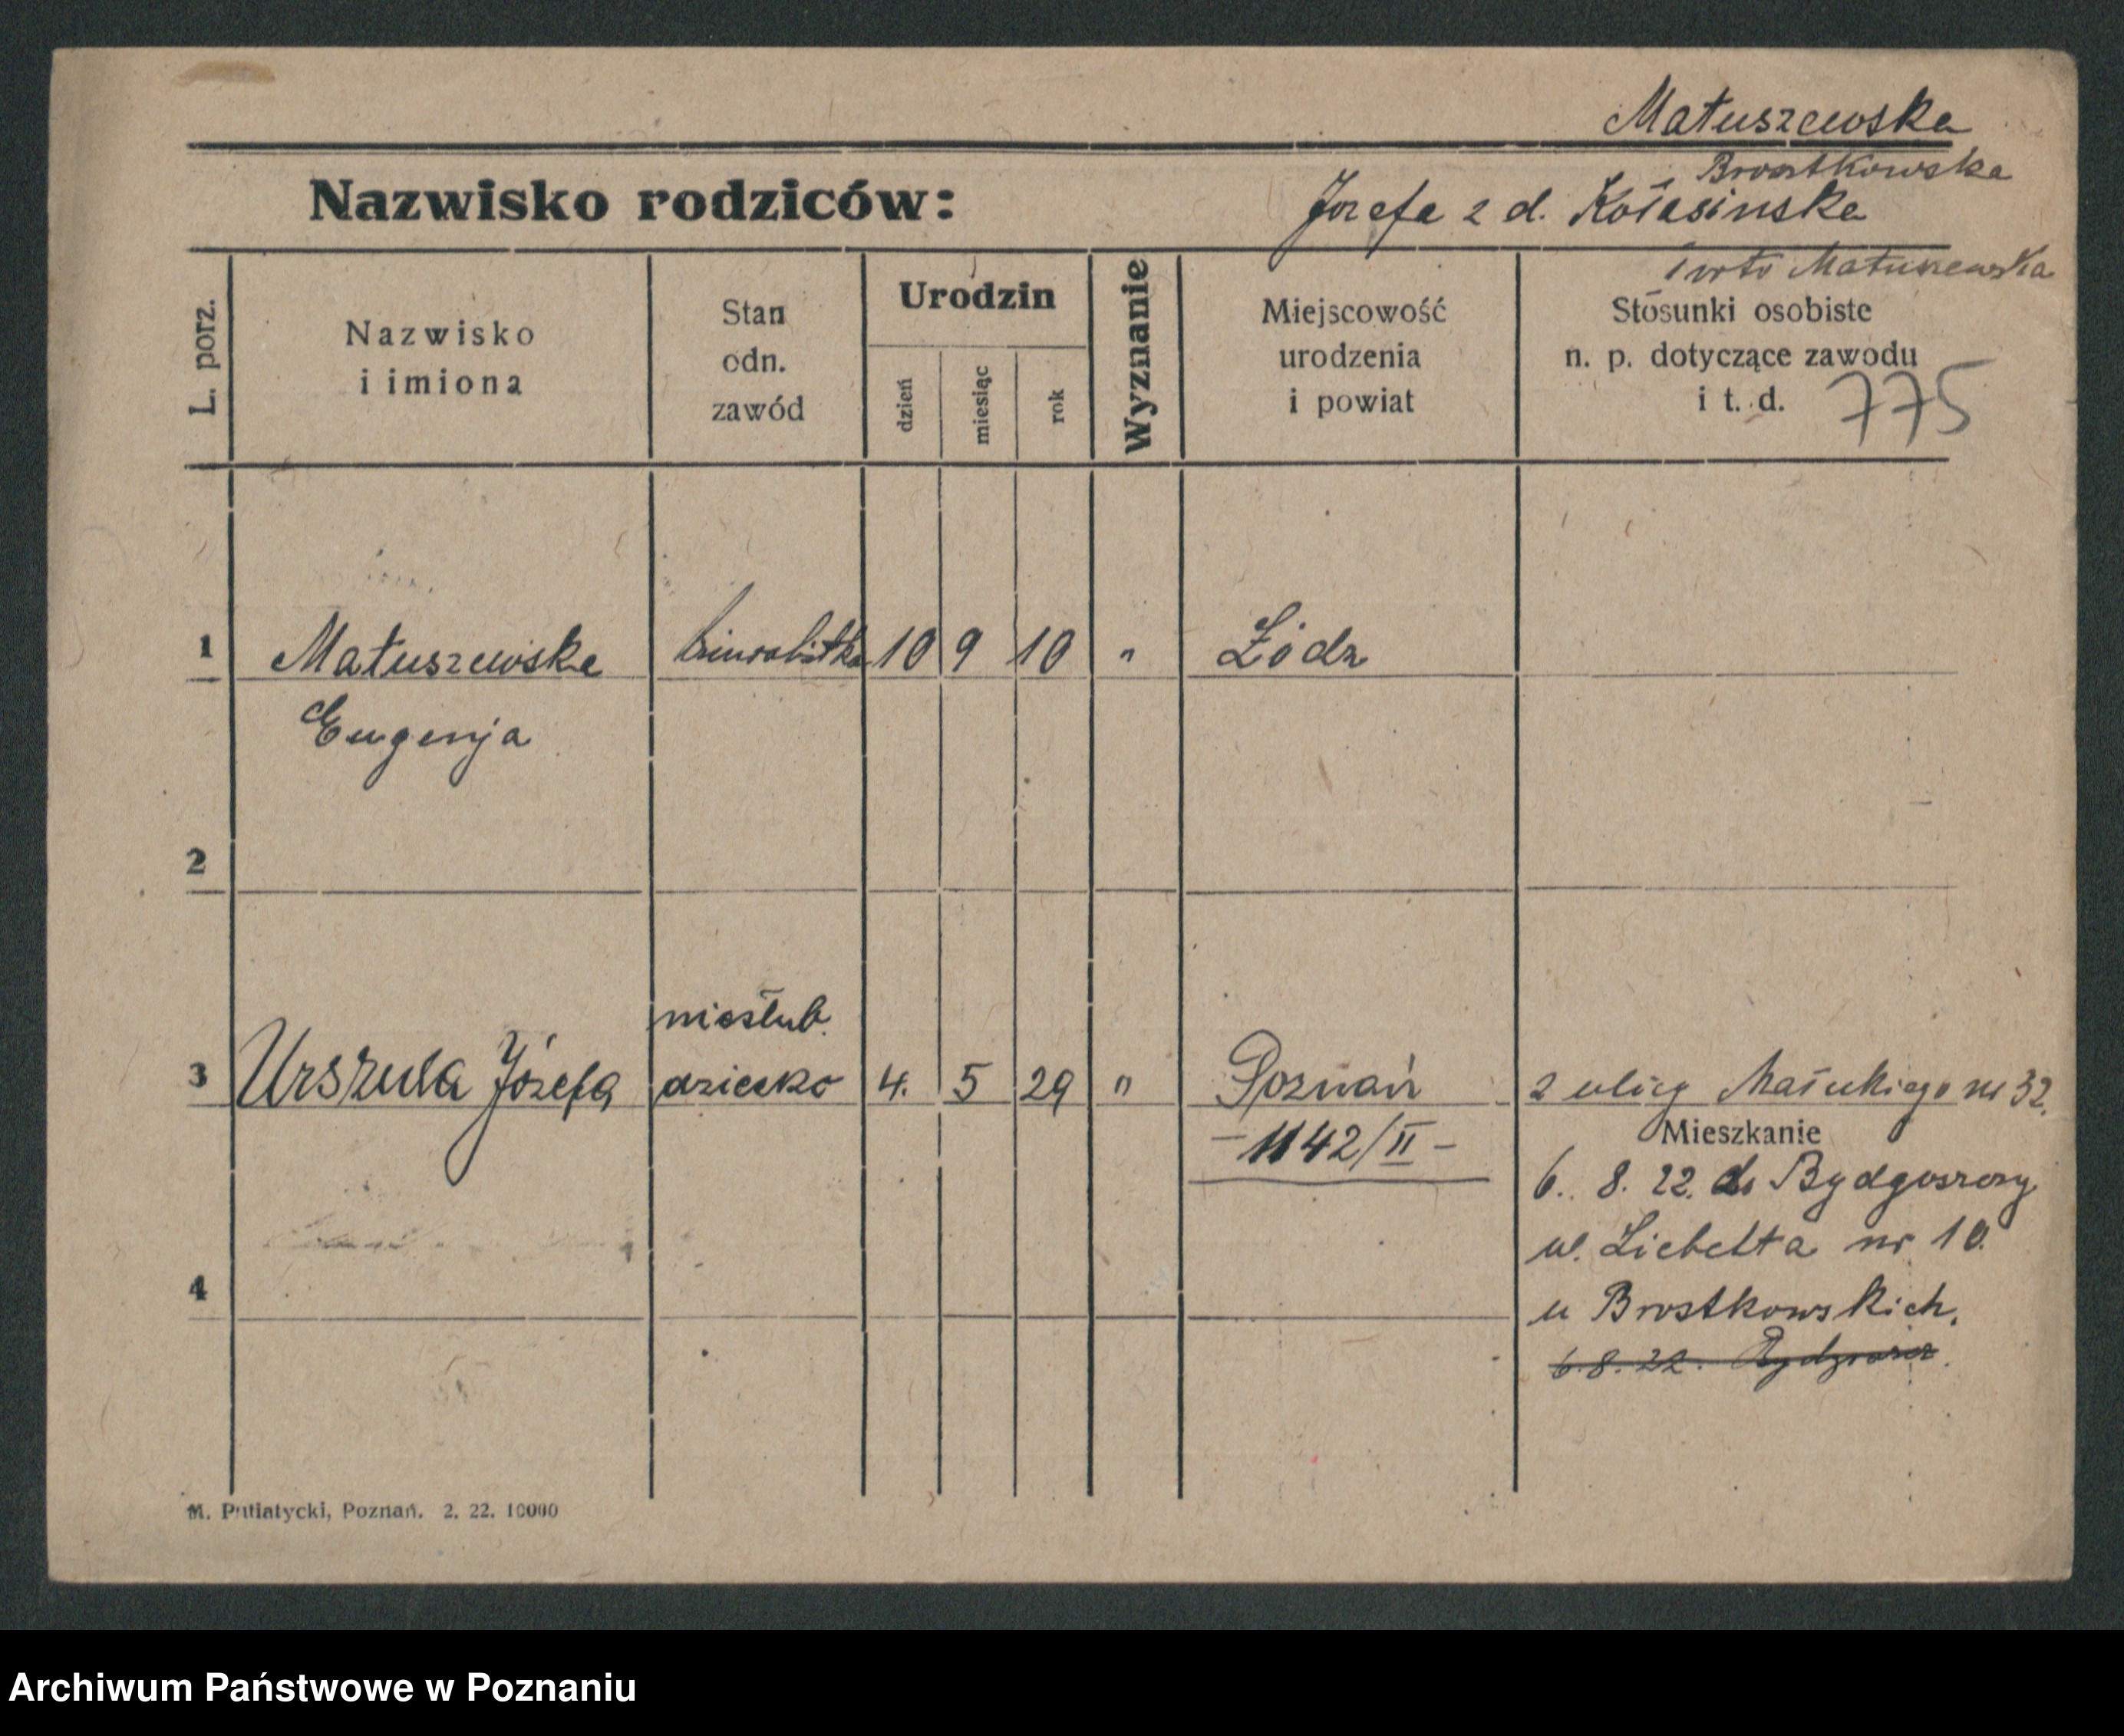 Matuszewska
Brostkowska
Nazwisko rodziców:
Jozefa z d. Kołasinska
1 voto Matuszewska
L. porz.
Nazwisko
i imiona
Stan
odn.
zawód
Urodzin
dzień
miesiąc
rok
Wyznanie
Miejscowość
urodzenia
i powiat
Stosunki osobiste
n. p. dotyczące zawodu
i t. d.
775
1 Matuszewska biuralistka 10 9 10 " Łódz
Eugenja
2
nieślub.
3 Urszula Józefa dziecko 4. 5 29 " Poznań z ulicy Małeckiego nr 32.
Mieszkanie
- 1142/II -
6. 8. 22. do Bydgoszczy
ul. Liebelta nr 10.
u Brostkowskich.
4
6. 8. 22. Bydgoszcz
M. Putiatycki, Poznań. 2. 22. 10000
Archiwum Państwowe w Poznaniu